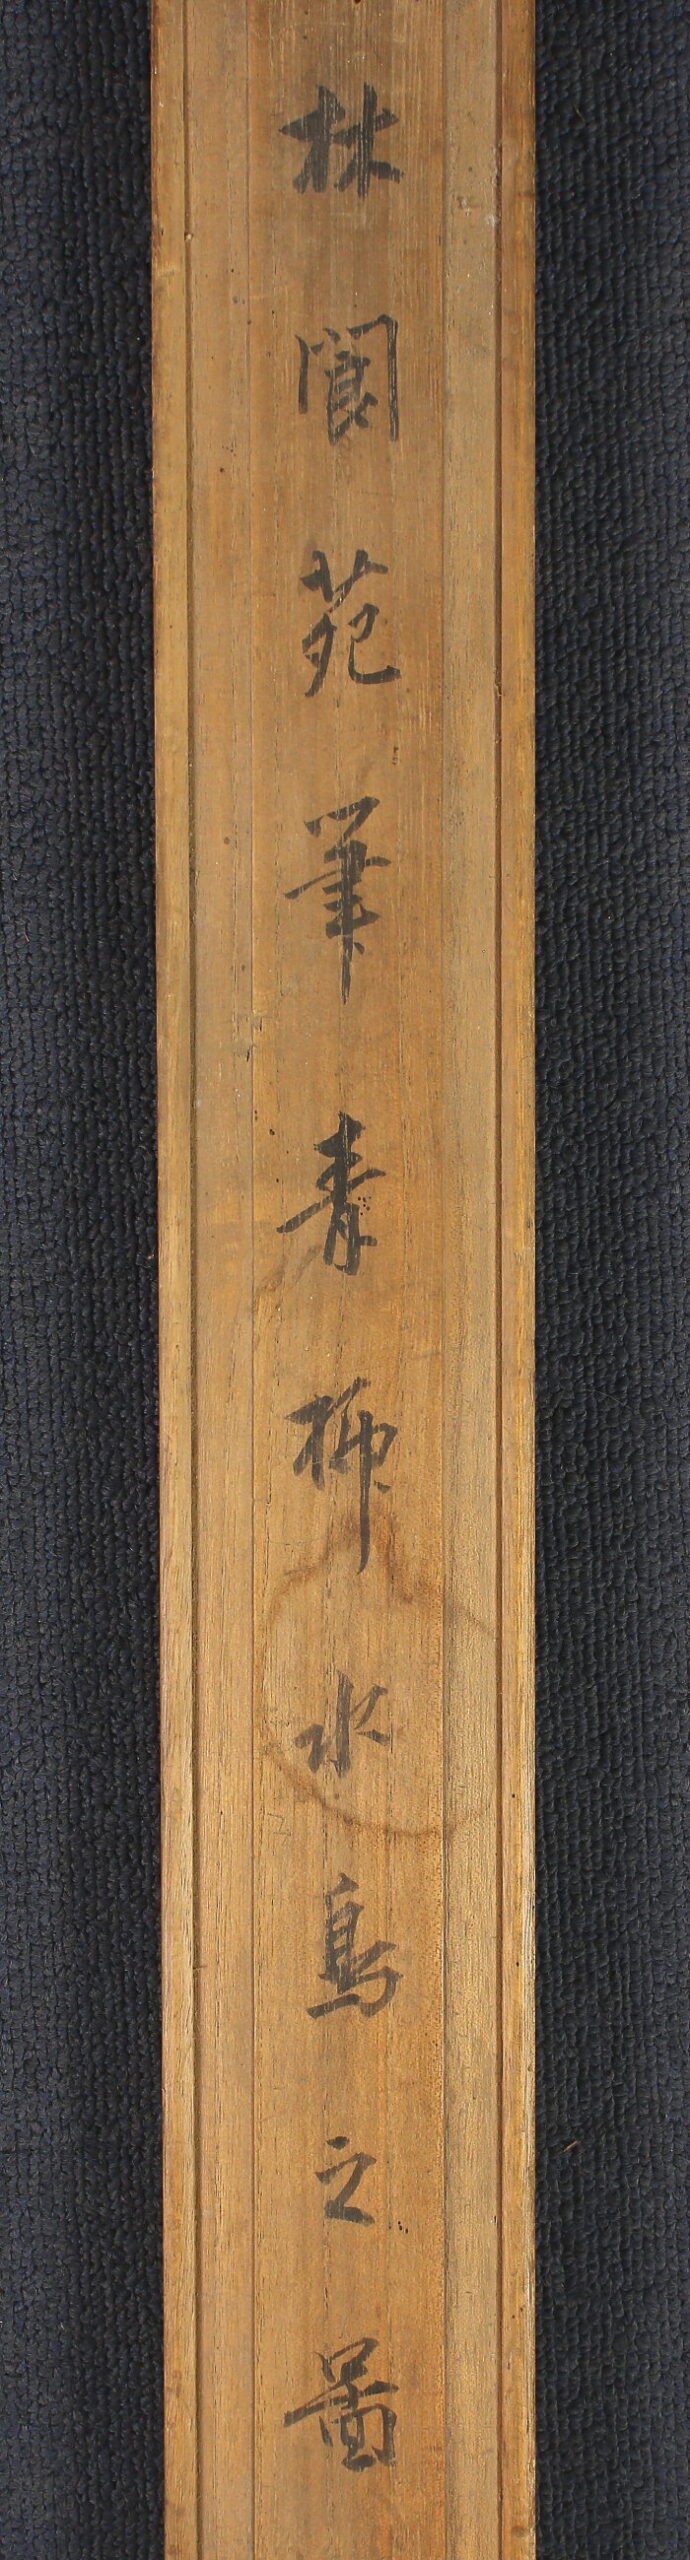 林閬苑筆青柳水鳥之啚